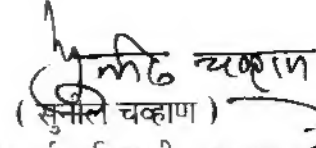 सुनील चव्हाण
( सुनील चव्हाण )